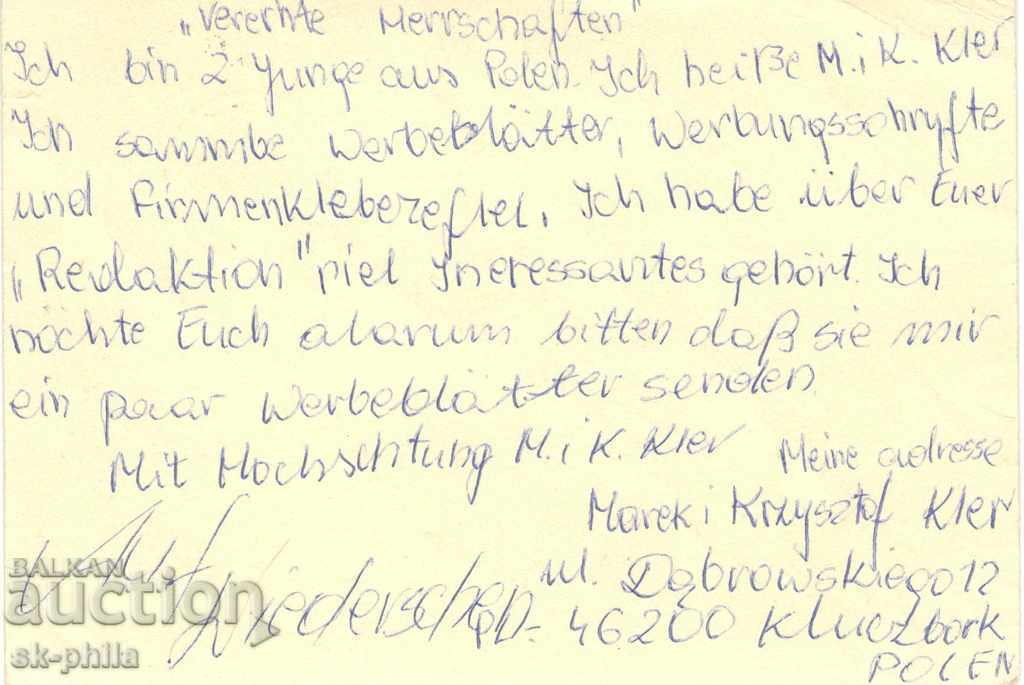 „Verehrte Herrschaften"
Ich bin 2 Junge aus Polen. Ich heiße M. i K. Kler
Ich sammbe Werbeblätter, Werbungsschryfte
und Firmenklebezeftel. Ich habe über Euer
„Redaktion" viel Ineressantes gehört. Ich
möchte Euch darum bitten daß sie mir
ein paar Werbeblätter senden.
Mit Hochschtung M. i K. Kler
Meine adresse
Marek i Krzysztof Kler
ul. Dąbrowskiego 12
46200 Kluczbork
POLEN
Auf Wiederschen
BALKAN
auction
sk-phila